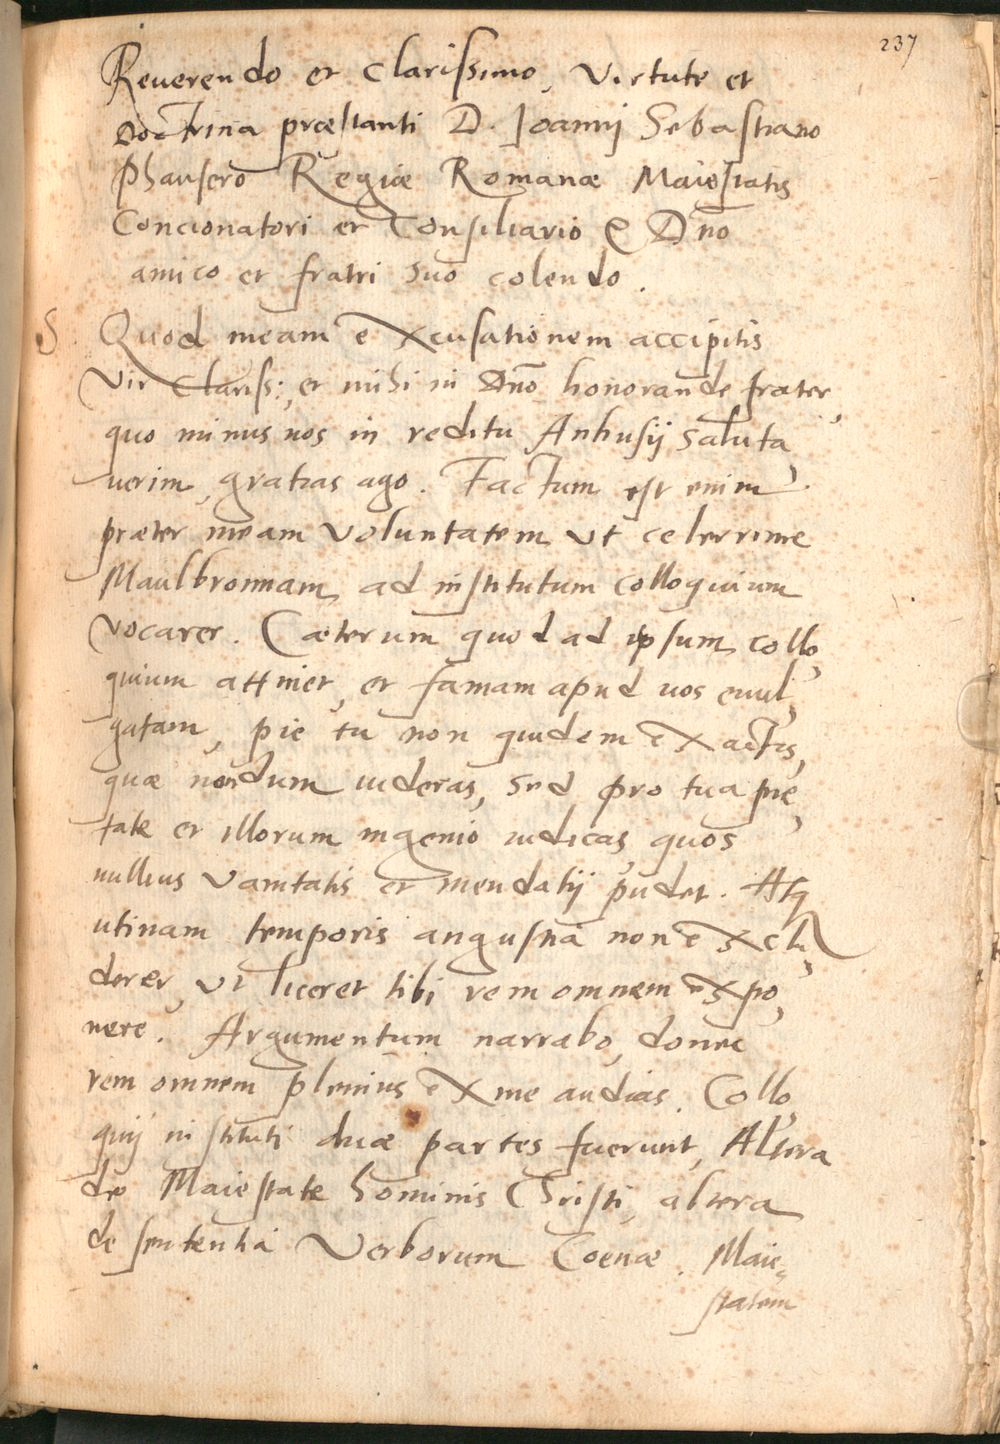 237
Reuerendo et clarissimo, Virtute et
Doctrina præstanti D. Joannj Sebastiano
Phausero Regiæ Romanæ Maiestatis
Concionatori et Consiliario & Dño
amico et fratri suo colendo.
S. Quod meam excusationem accipitis
Vir Clariss: et mihi in Dño honorande frater,
quo minus nos in reditu Anhusij saluta,
uerim, gratias ago. Factum est enim
præter meam voluntatem ut celerrime
Maulbronnam ad institutum colloquium
vocarer. Cæterum quod ad ipsum collo,
quium attinet, et famam apud uos euul,
gatam, pie tu non quidem ex actis,
quæ nondum uideras, sed pro tua pie,
tate et illorum ingenio iudicas, quos
nullius vanitatis et mendatij pudet. Atq
utinam temporis angustia non exclu,
derer, ut liceret tibi rem omnem expo,
nere. Argumentum narrabo, donec
rem omnem plenius ex me audias. Collo,
quij instituti duæ partes fuerunt, Altera
de Maiestate hominis Christi, altera
de sententia Verborum Coenæ. Maie,
statem